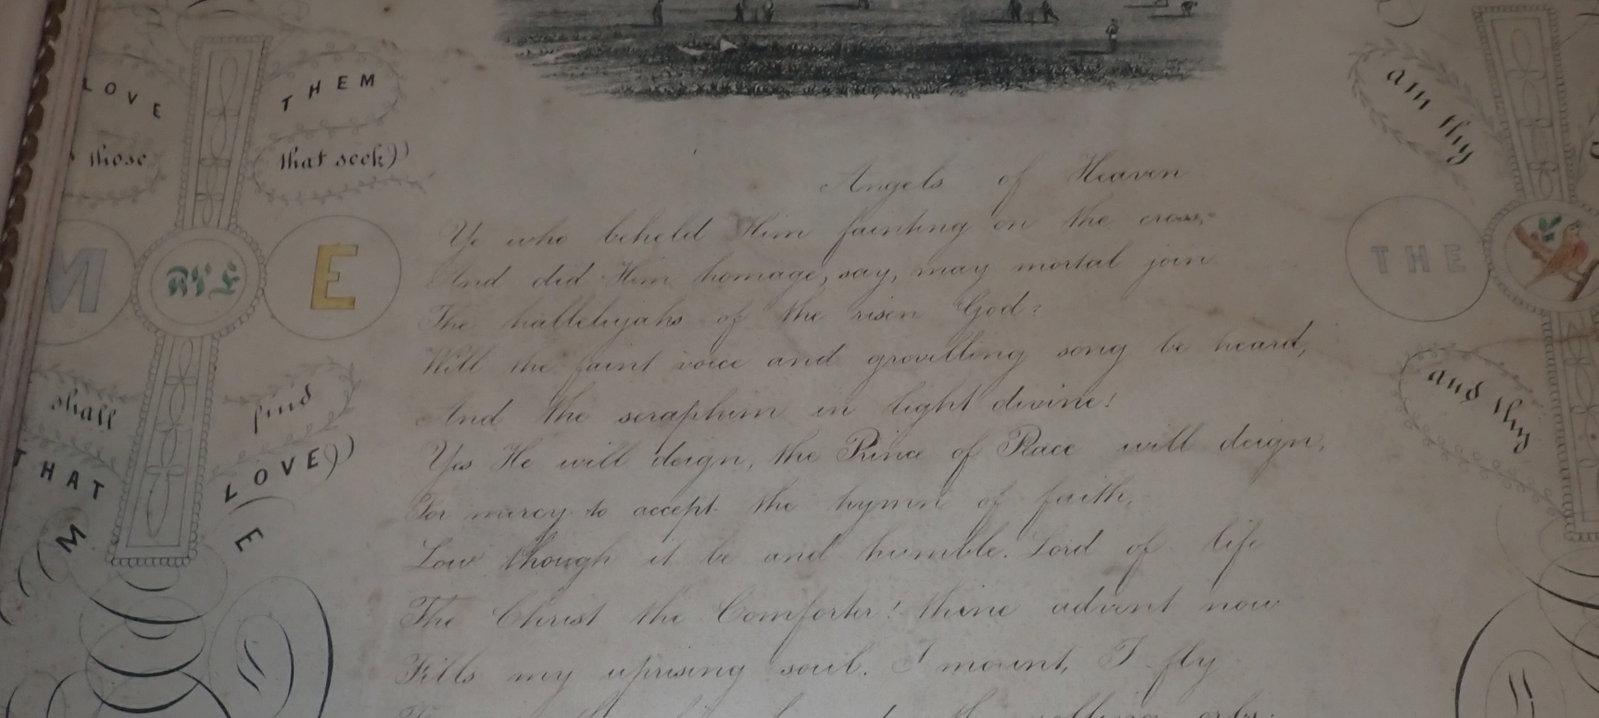 LOVE
THEM
those
that seek)
M
ARE
E
shall
find
THAT
LOVE)
M
E
am thy
THE
and thy
Angels of Heaven
Ye who beheld Him fainting on the cross,
And did Him homage, say, may mortal join
The hallelujahs of the risen God?
Will the faint voice and grovelling song be heard,
And the seraphim in light divine!
Yes He will deign, the Prince of Peace will deign,
For mercy to accept the hymn of faith,
Low though it be and humble. Lord of life
The Christ the Comforter! thine advent now
Fills my uprising soul. I mount, I fly